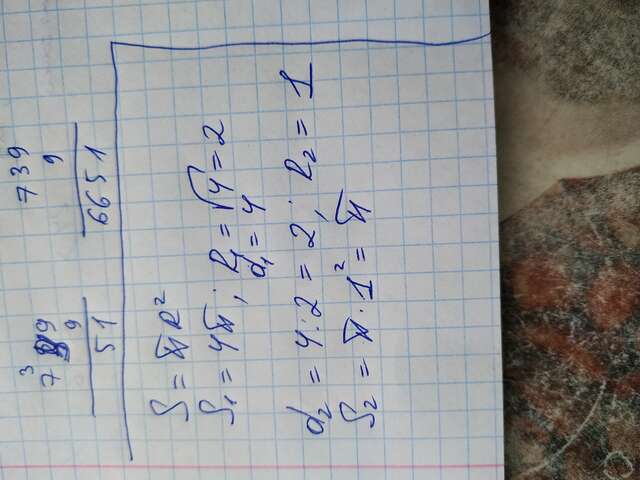 3
7 9
9
51
739
9
6651
S = πR²
S₁ = 4π; R₁ = √4 = 2
d₁ = 4
d₂ = 4:2 = 2; R₂ = 1
S₂ = π·1² = π